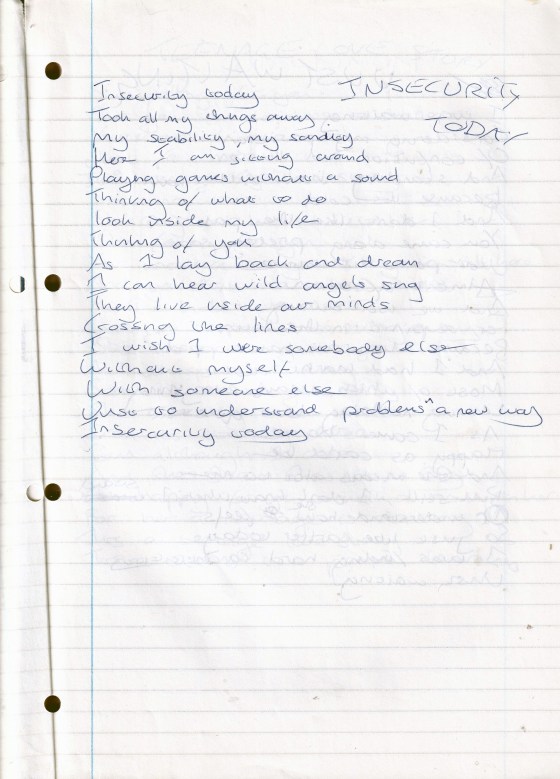 INSECURITY
TODAY
Insecurity today
Took all my things away
My stability, my sandity
Here I am sitting around
Playing games without a sound
Thinking of what to do
Look inside my life
Thinking of you
As I lay back and dream
I can hear wild angels sing
They live inside our minds
Crossing the lines
I wish I were somebody else
Without myself
With someone else
Just to understand problems "a new way
Insercurity today